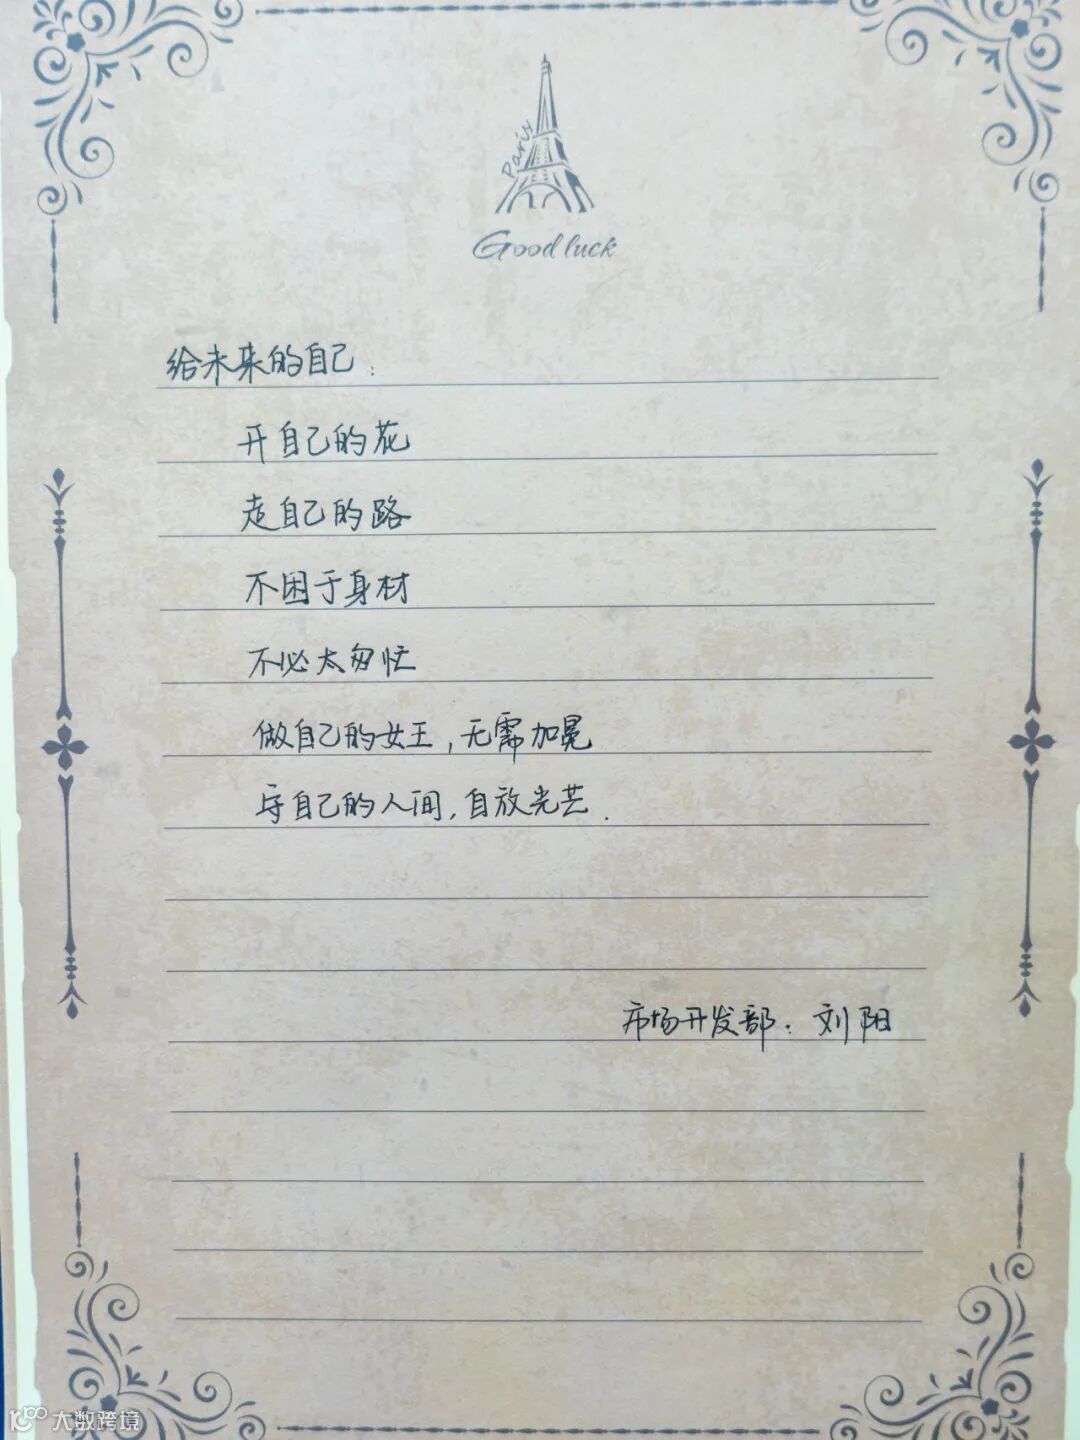 Paris
Good luck
给未来的自己:
开自己的花
走自己的路
不困于身材
不必太匆忙
做自己的女王,无需加冕
守自己的人间,自放光芒.
市场开发部: 刘阳
大数跨境